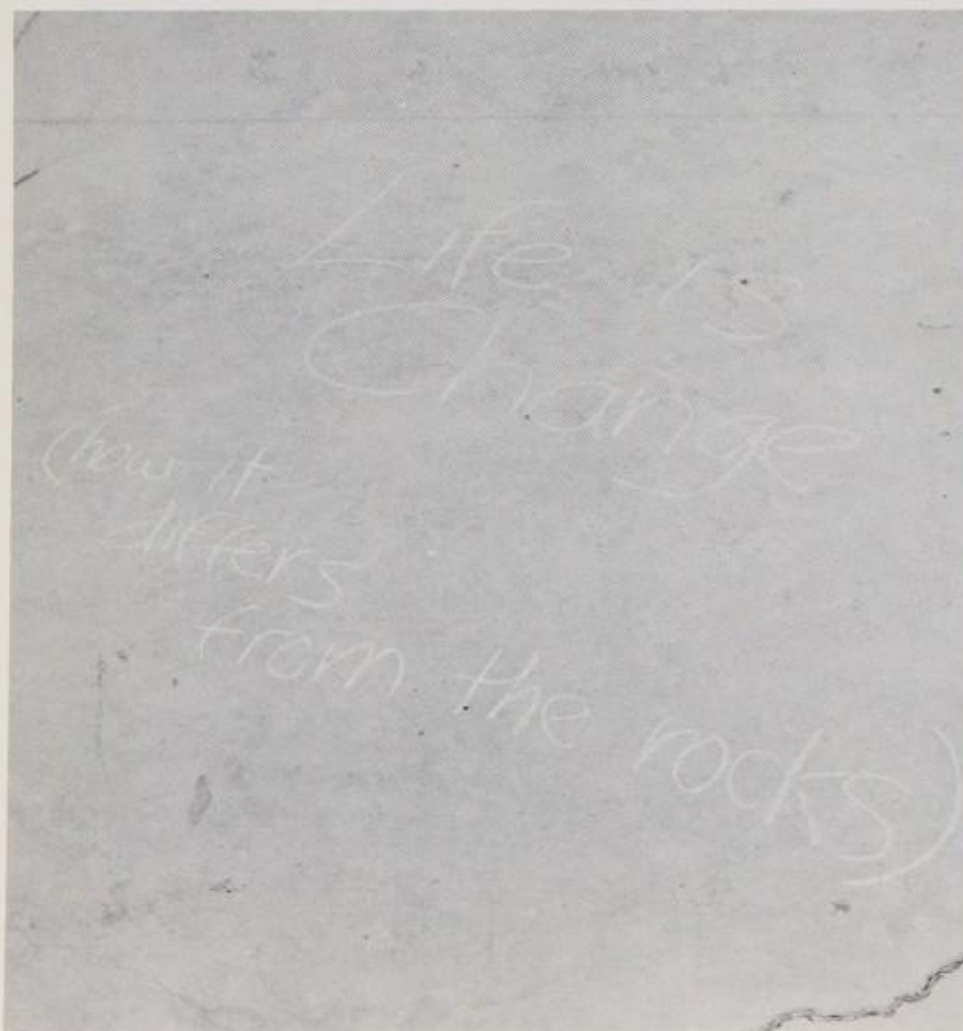 Life Is
Change
(how it
differs
from the rocks)